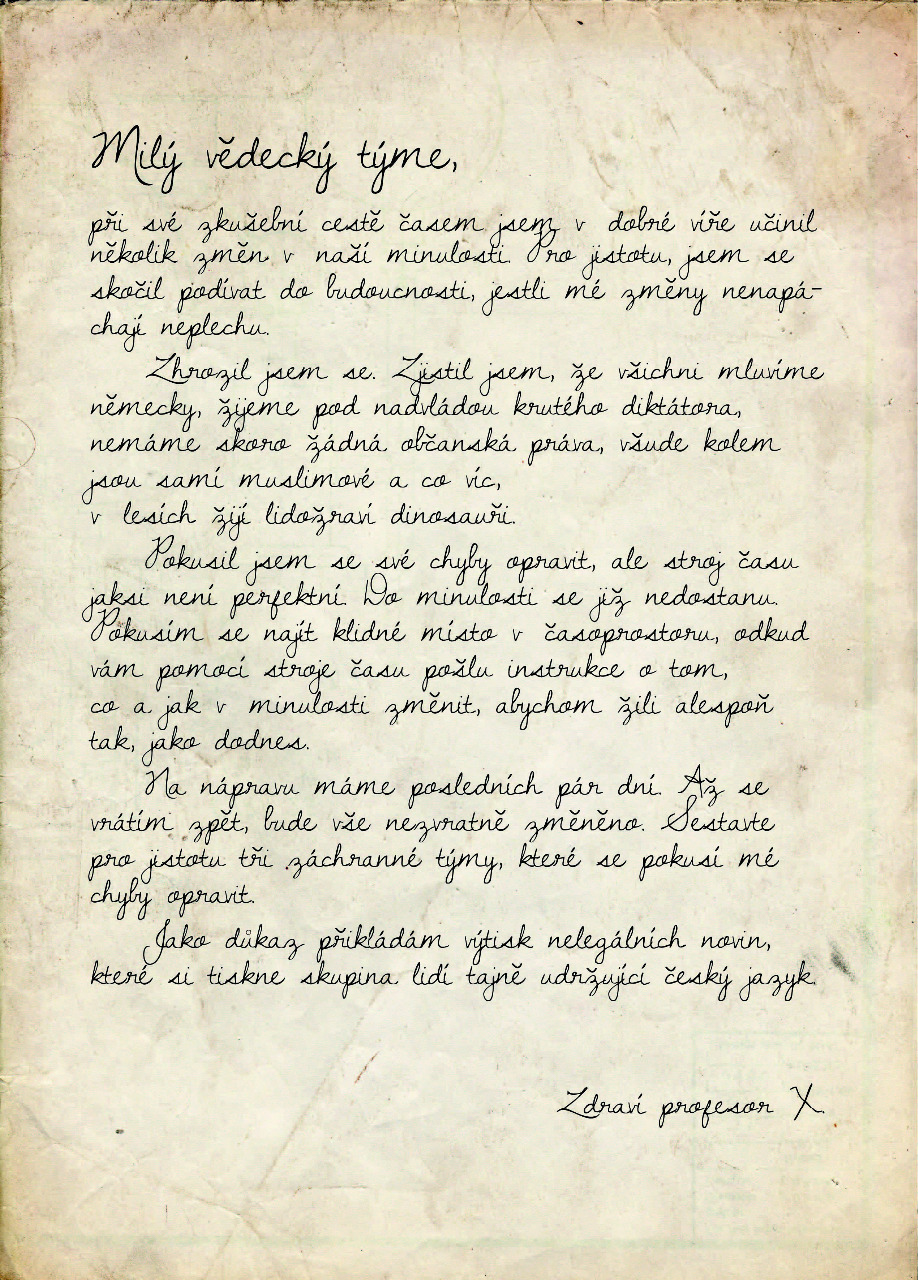 Milý vědecký týme,
při své zkušební cestě časem jsem v dobré víře učinil
několik změn v naší minulosti. Pro jistotu, jsem se
skočil podívat do budoucnosti, jestli mé změny nenapá-
chají neplechu.
Zhrozil jsem se. Zjistil jsem, že všichni mluvíme
německy, žijeme pod nadvládou krutého diktátora,
nemáme skoro žádná občanská práva, všude kolem
jsou samí muslimové a co víc,
v lesích žijí lidožraví dinosauři.
Pokusil jsem se své chyby opravit, ale stroj času
jaksi není perfektní. Do minulosti se již nedostanu.
Pokusím se najít klidné místo v časoprostoru, odkud
vám pomocí stroje času pošlu instrukce o tom,
co a jak v minulosti změnit, abychom žili alespoň
tak, jako dodnes.
Na nápravu máme posledních pár dní. Až se
vrátím zpět, bude vše nezvratně změněno. Sestavte
pro jistotu tři záchranné týmy, které se pokusí mé
chyby opravit.
Jako důkaz přikládám výtisk nelegálních novin,
které si tiskne skupina lidí tajně udržující český jazyk.
Zdraví profesor X.